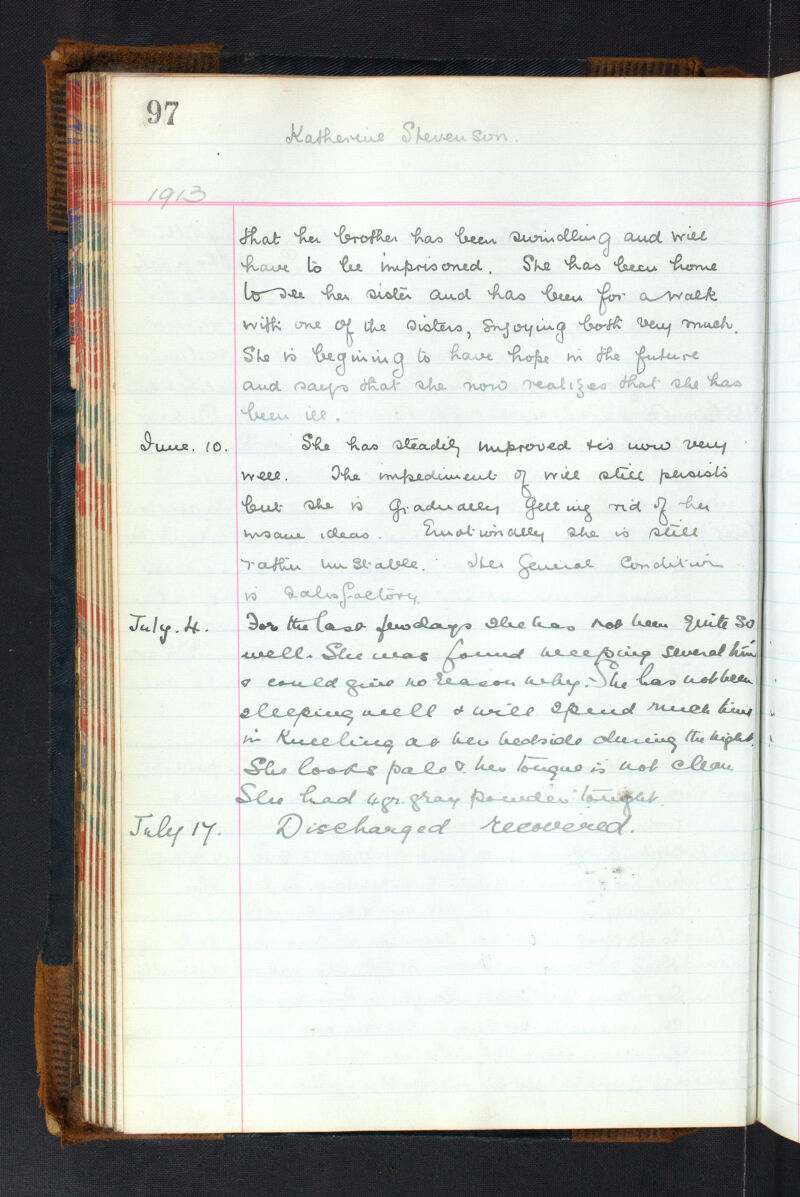 97
Katherine Stevenson.
1913
that her brother has been swindling and will
have to be imprisoned. She has been home
to see her sister and has been for a walk
with one of the sisters, enjoying both very much.
She is begining to have hope in the future
and says that she now realizes that she has
been ill.
June. 10. She has steadily improved & is now very
well. The impediment of will still persists
but she is gradually getting rid of her
insane ideas. Emotionally she is still
rather unstable. Her general condition
is satisfactory.
July. 4. For the last few days she has not been quite so
well. She was found weeping several tim
& could give no reason why. She has not been
sleeping well & will spend much time
in kneeling at her bedside during the night.
She looks pale & her tongue is not clean
She had 4gr. gray powder tonight.
July 17. Discharged recovered.